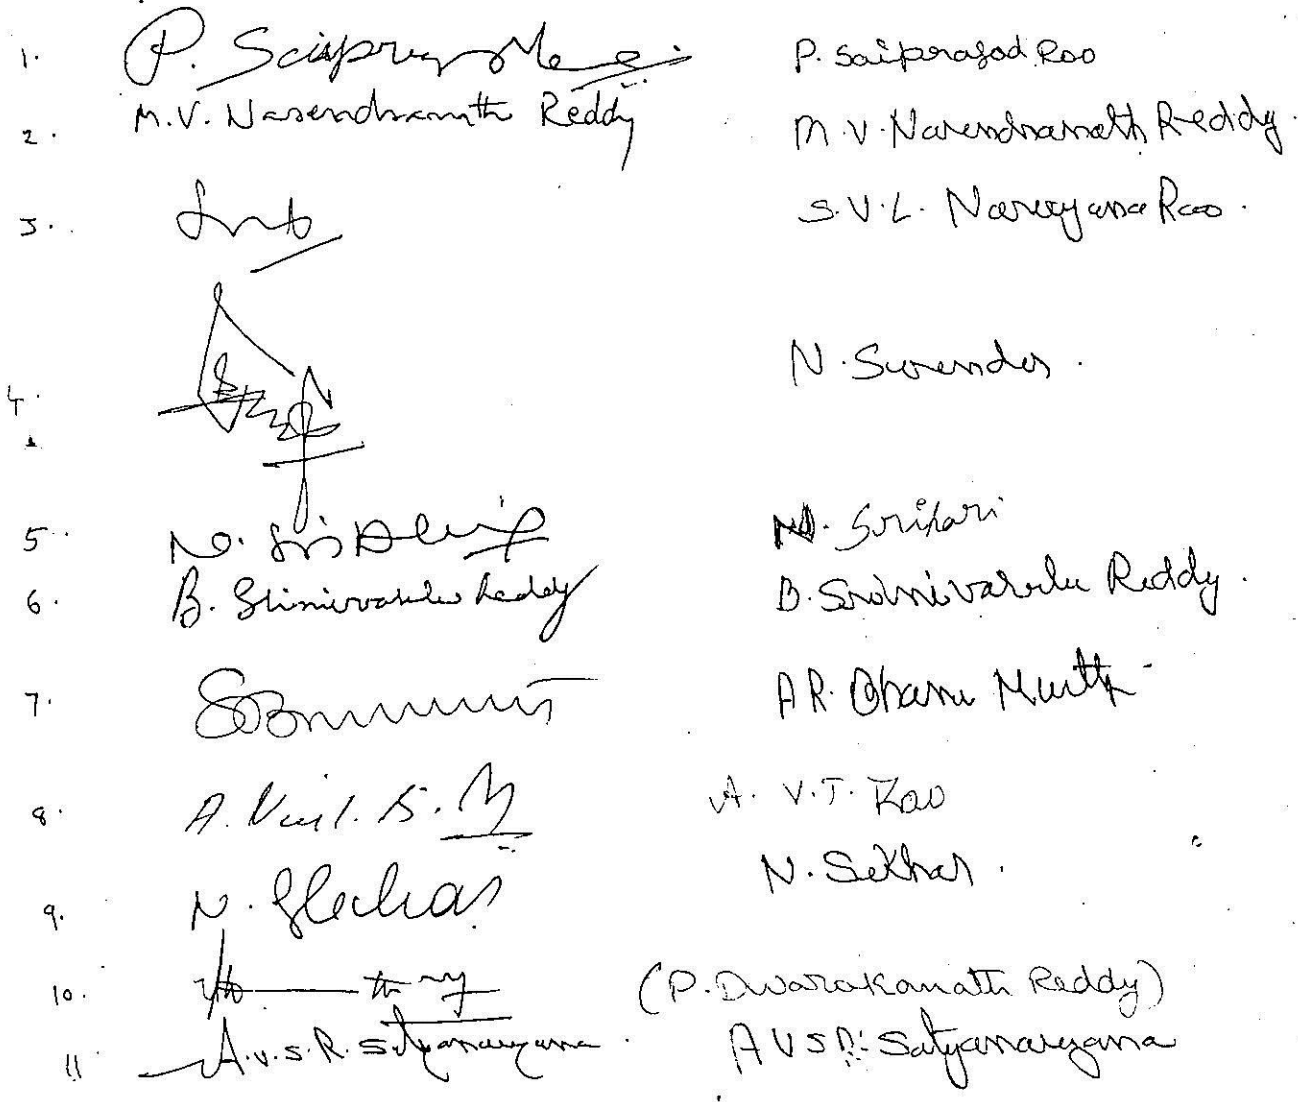 1. P. Saiprasad Rao
2. M.V. Narendranath Reddy M.V. Narendranath Reddy
3. S.V.L. Narayana Rao.
4. N. Surender.
5. N. Srihari
6. B. Srinivasulu Reddy B. Srinivasulu Reddy.
7. A R. Bhanu Murthy
8. A. V.T. Rao
9. N. Sekhar N. Sekhar.
10. (P. Dwarakanath Reddy)
11 A.V.S.R. Satyanarayana A V S R. Satyanarayana